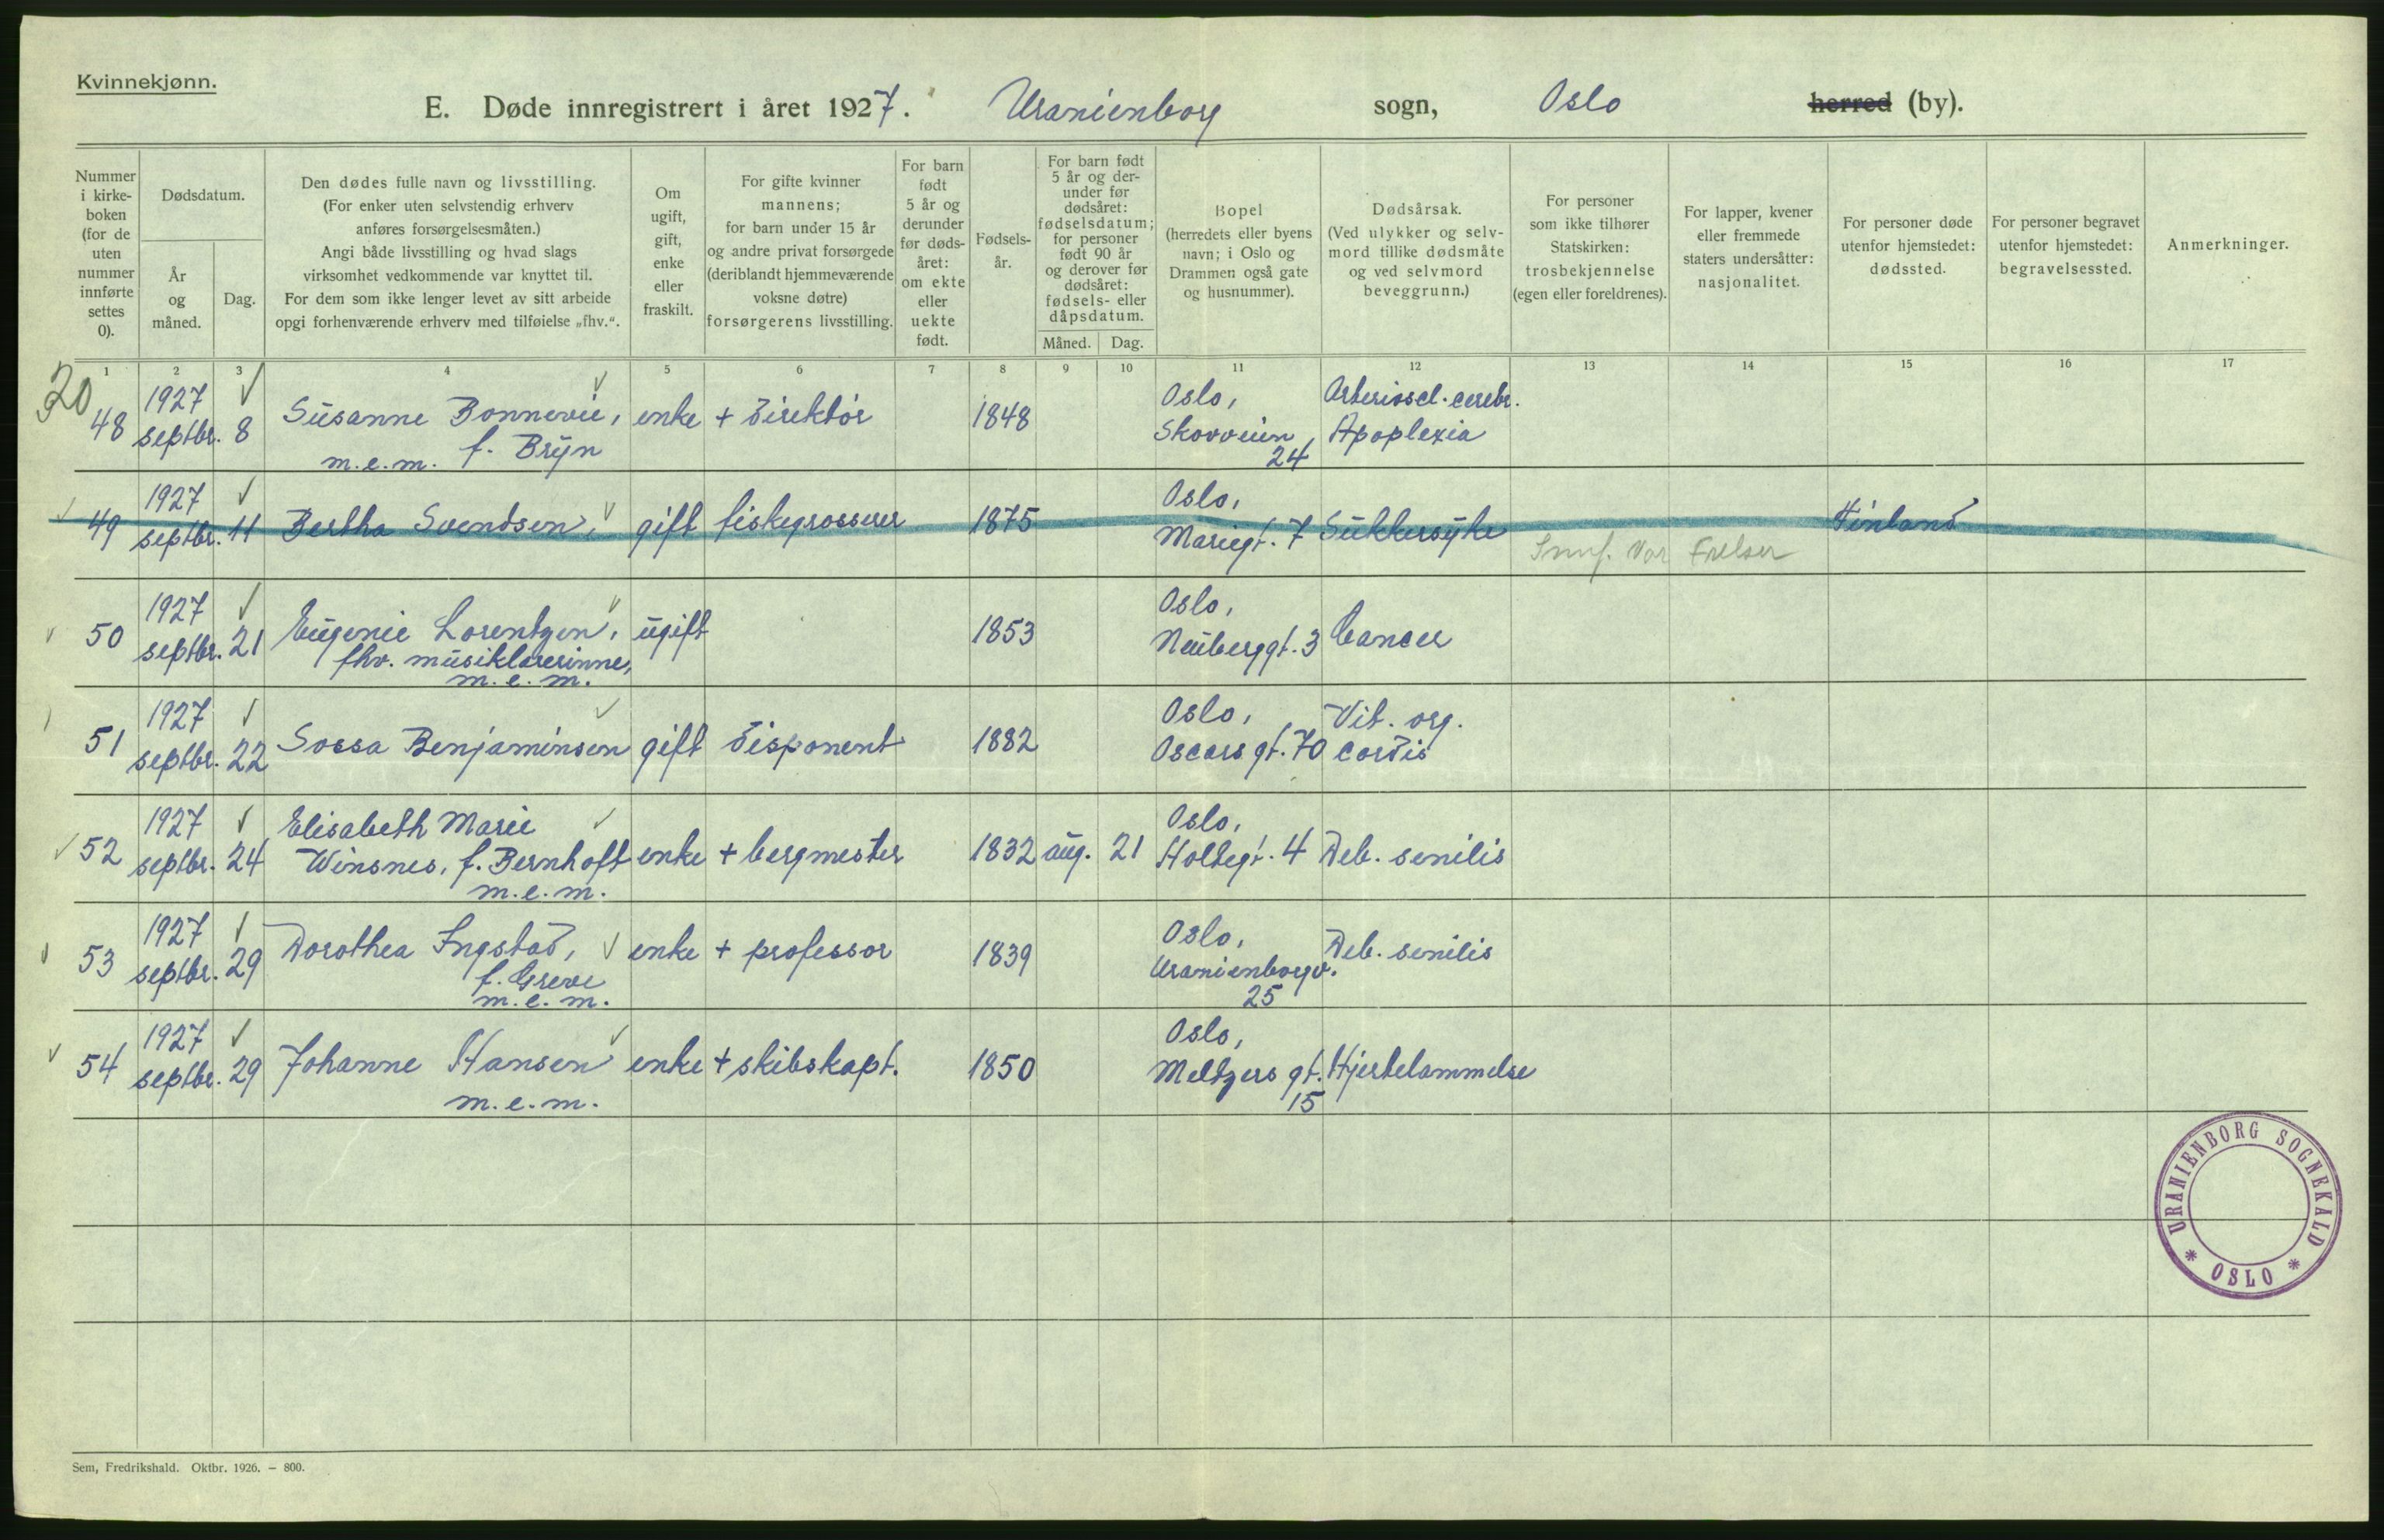 Kvinnekjønn.
E. Døde innregistrert i året 1927. Uranienborg sogn, Oslo herred (by).
Nummer i kirke-boken (for de uten nummer innførte settes 0).
Dødsdatum.
År og måned.
Dag.
Den dødes fulle navn og livsstilling.
(For enker uten selvstendig erhverv
anføres forsørgelsesmåten.)
Angi både livsstilling og hvad slags
virksomhet vedkommende var knyttet til.
For dem som ikke lenger levet av sitt arbeide
opgi forhenværende erhverv med tilføielse „fhv.“.
Om
ugift,
gift,
enke
eller
fraskilt.
For gifte kvinner
mannens;
for barn under 15 år
og andre privat forsørgede
(deriblandt hjemmeværende
voksne døtre)
forsørgerens livsstilling.
For barn
født
5 år og
derunder
før døds-
året:
om ekte
eller
uekte
født.
Fødsels-
år.
For barn født
5 år og der-
under før
dødsåret:
fødselsdatum;
for personer
født 90 år
og derover før
dødsåret:
fødsels- eller
dåpsdatum.
Måned. Dag.
Bopel
(herredets eller byens
navn; i Oslo og
Drammen også gate
og husnummer).
Dødsårsak.
(Ved ulykker og selv-
mord tillike dødsmåte
og ved selvmord
beveggrunn.)
For personer
som ikke tilhører
Statskirken:
trosbekjennelse
(egen eller foreldrenes).
For lapper, kvener
eller fremmede
staters undersåtter:
nasjonalitet.
For personer døde
utenfor hjemstedet:
dødssted.
For personer begravet
utenfor hjemstedet:
begravelsessted.
Anmerkninger.
1 2 3 4 5 6 7 8 9 10 11 12 13 14 15 16 17
20
48 1927 septbr. 8 Susanne Bonnevie, f. Bryn m.e.m. enke + direktør 1848 Oslo, Skovveien 24 Arterioscl. cerebr. Apoplexia
49 1927 septbr. 11 Bertha Svendsen, gift fiskegrosserer 1875 Oslo, Mariegt. 7 Sukkersyke Finland
Vor Frelser
50 1927 septbr. 21 Eugenie Lorentzen, fhv. musiklærerinne, m.e.m. ugift 1853 Oslo, Neuberggt. 3 Cancer
51 1927 septbr. 22 Sossa Benjaminsen gift disponent 1882 Oslo, Oscars gt. 70 Vit. org. cordis
52 1927 septbr. 24 Elisabeth Marie Winsnes, f. Bernhoft m.e.m. enke + bergmester 1832 aug. 21 Oslo, Holtegt. 4 Deb. senilis
53 1927 septbr. 29 Dorothea Ingstad, f. Greve m.e.m. enke + professor 1839 Oslo, Uranienborgv. 25 Deb. senilis
54 1927 septbr. 29 Johanne Hansen m.e.m. enke + skibskapt. 1850 Oslo, Meltzers gt. 15 Hjertelammelse
URANIENBORG SOGNEKALD * OSLO *
Sem, Fredrikshald. Oktbr. 1926. – 800.